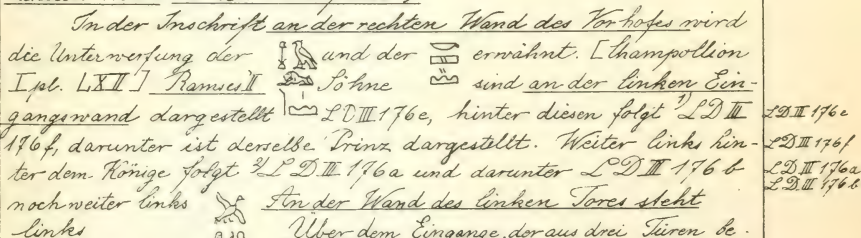 In der Inschrift an der rechten Wand des Vorhofes wird
die Unterwerfung der und der erwähnt. [Champollion
I pl. LXII] Ramses II Söhne sind an der linken Ein-
gangswand dargestellt LD III 176e, hinter diesen folgt 1) LD III LD III 176e
176f, darunter ist derselbe Prinz dargestellt. Weiter links hin- LD III 176f
ter dem Könige folgt 2) LD III 176a und darunter LD III 176 b LD III 176a
LD III 176b
noch weiter links An der Wand des linken Tores steht
links Über dem Eingange, der aus drei Türen be-